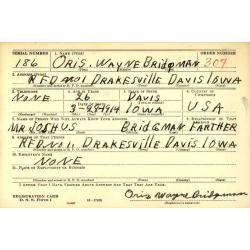 SERIAL NUMBER 1. NAME (Print) ORDER NUMBER
186 ORIS. WAYNE BRIDGMAN 307
2. ADDRESS (Print)
RFD NO1 DRAKESVILLE DAVIS IOWA
3. TELEPHONE 4. AGE IN YEARS 5. PLACE OF BIRTH 6. COUNTRY OF CITIZENSHIP
NONE 26 DAVIS
3-23-1914 IOWA USA
7. NAME OF PERSON WHO WILL ALWAYS KNOW YOUR ADDRESS 8. RELATIONSHIP OF THAT PERSON
MR JOSHUS BRIDGMAN FARTHER
9. ADDRESS OF THAT PERSON
RFD NO1 DRAKESVILLE DAVIS IOWA
10. EMPLOYER'S NAME
NONE
11. PLACE OF EMPLOYMENT OR BUSINESS
I AFFIRM THAT I HAVE VERIFIED ABOVE ANSWERS AND THAT THEY ARE TRUE.
REGISTRATION CARD
D. S. S. FORM 1
Oris Wayne Bridgman